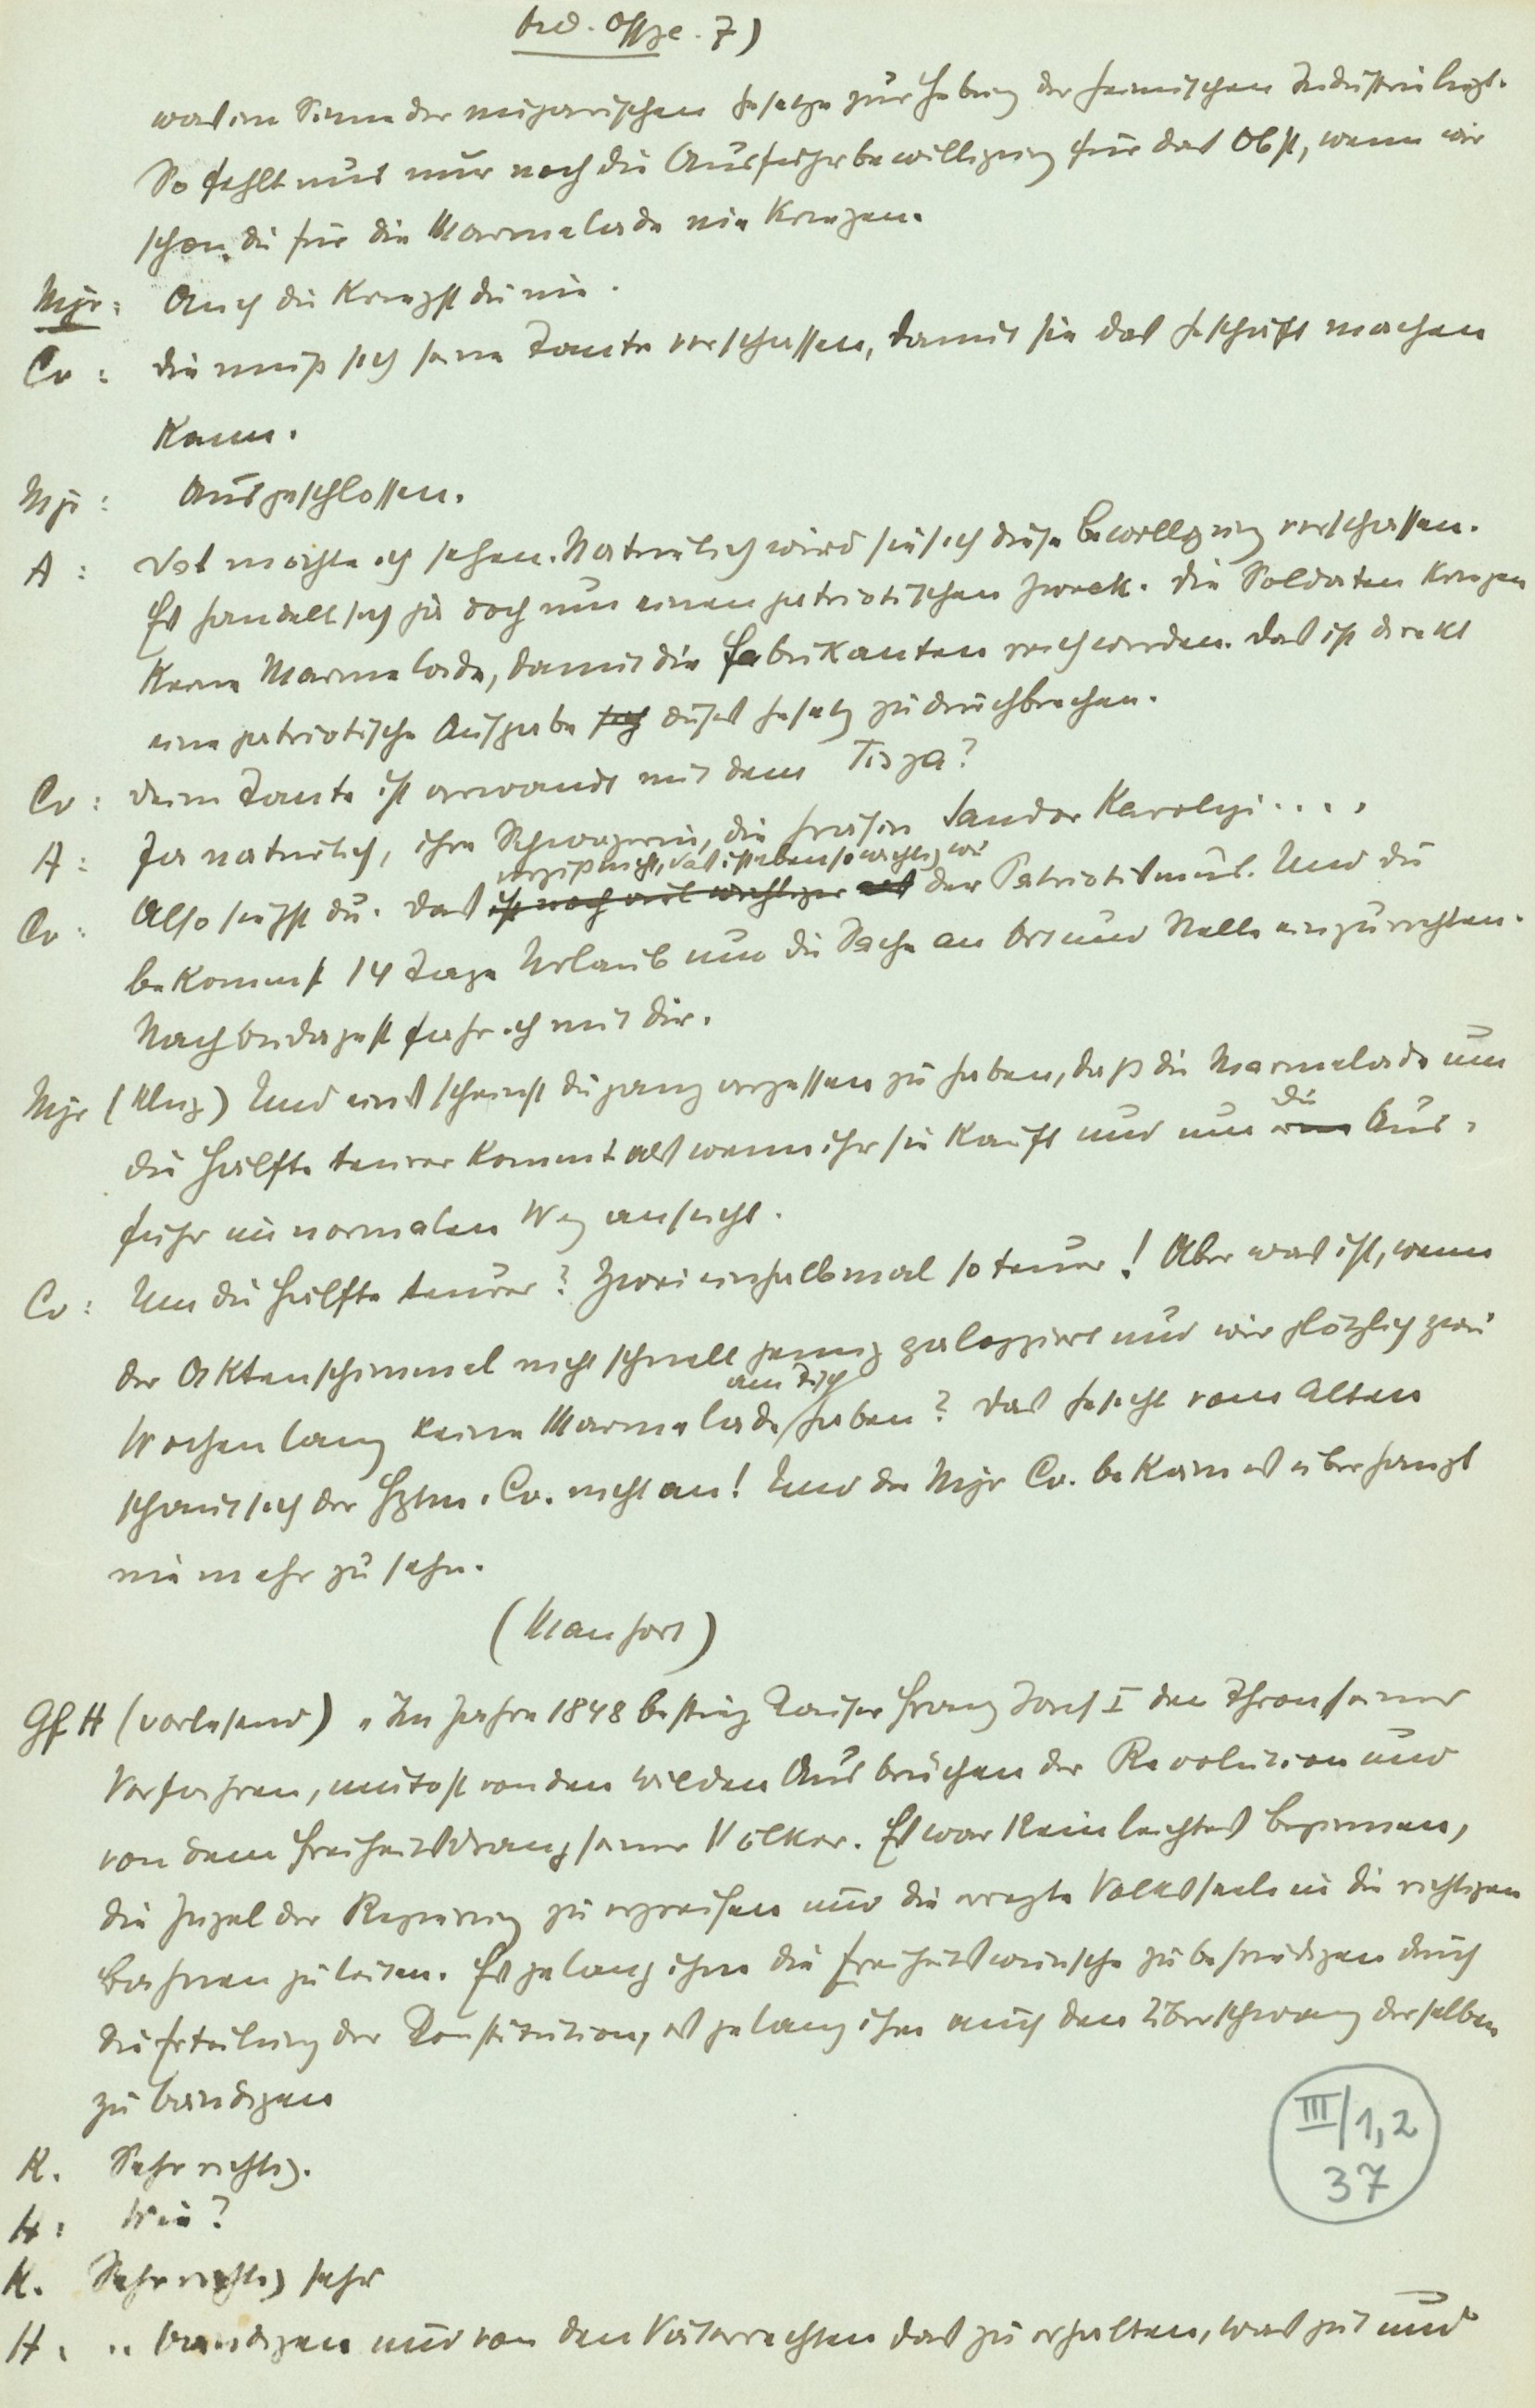 Ord. Offze. 7)
was im Sinne der ungarischen Gesetze zur Hebung der heimischen Industrie liegt.
So fehlt uns nur noch die Ausfuhrbewilligung für das Obst, wenn wir
schon die für die Marmelade nie kriegen.
Mjr: Auch die kriegst du nie.
Co: Die muß sich seine Tante verschaffen, damit sie das Geschäft machen
kann.
Mjr: Ausgeschlossen.
A: Das möchte ich sehen. Natürlich wird sie sich diese Bewilligung verschaffen.
Es handelt sich ja doch um einen patriotischen Zweck. Die Soldaten kriegen
keine Marmelade, damit die Fabrikanten reich werden. Das ist direkt
eine patriotische Aufgabe sich dieses Gesetz zu druchbrechen.
Co: Deine Tante ist verwandt mit dem Tisza?
A: Ja natürlich, ihre Schwägerin, die Gräfin Sandor Karolyi....
vergiß nicht, das ist ebenso wichtig wie
Co: Also siehst du. Das ist noch viel wichtiger als der Patriotismus. Und du
bekommst 14 Tage Urlaub um die Sache an Ort und Stelle einzurichten.
Nach Budapest fahr ich mit dir.
Mjr (klug) Und eins scheinst du ganz vergessen zu haben, daß die Marmelade um
die
die Hälfte teurer kommt als wenn ihr sie kauft und um Aus-
fuhr im normalen Weg ansucht.
Co: Um die Hälfte teurer? Zweieinhalbmal so teuer! Aber was ist, wenn
der Aktenschimmel nicht schnell genug galoppiert und wir plötzlich zwei
am Tisch
Wochen lang keine Marmelade haben? Das Gesicht vom Alten
schaut sich der Hptm. Co. nicht an! Und der Mjr Co. bekäm es überhaupt
nie mehr zu sehn.
(Man hört)
Gf H (vorlesend) „Im Jahre 1848 bestieg Kaiser Franz Josef I den Thron seiner
Vorfahren, umtost von den wilden Ausbrüchen der Revolution und
von dem Freiheitsdrang seiner Völker. Es war kein leichtes Beginnen,
die Zügel der Regierung zu ergreifen und die erregte Volksseele in die richtigen
Bahnen zu leiten. Es gelang ihm die Freiheitswünsche zu befriedigen durch
die Erteilung der Konstitution, es gelang ihm auch den Überschwang derselben
zu bändigen
K. Sehr richtig.
H: Wie?
K. Sehr richtig sehr
H: .. bändigen und von den Väterrechten das zu erhalten, was gut und
III/1,2
37